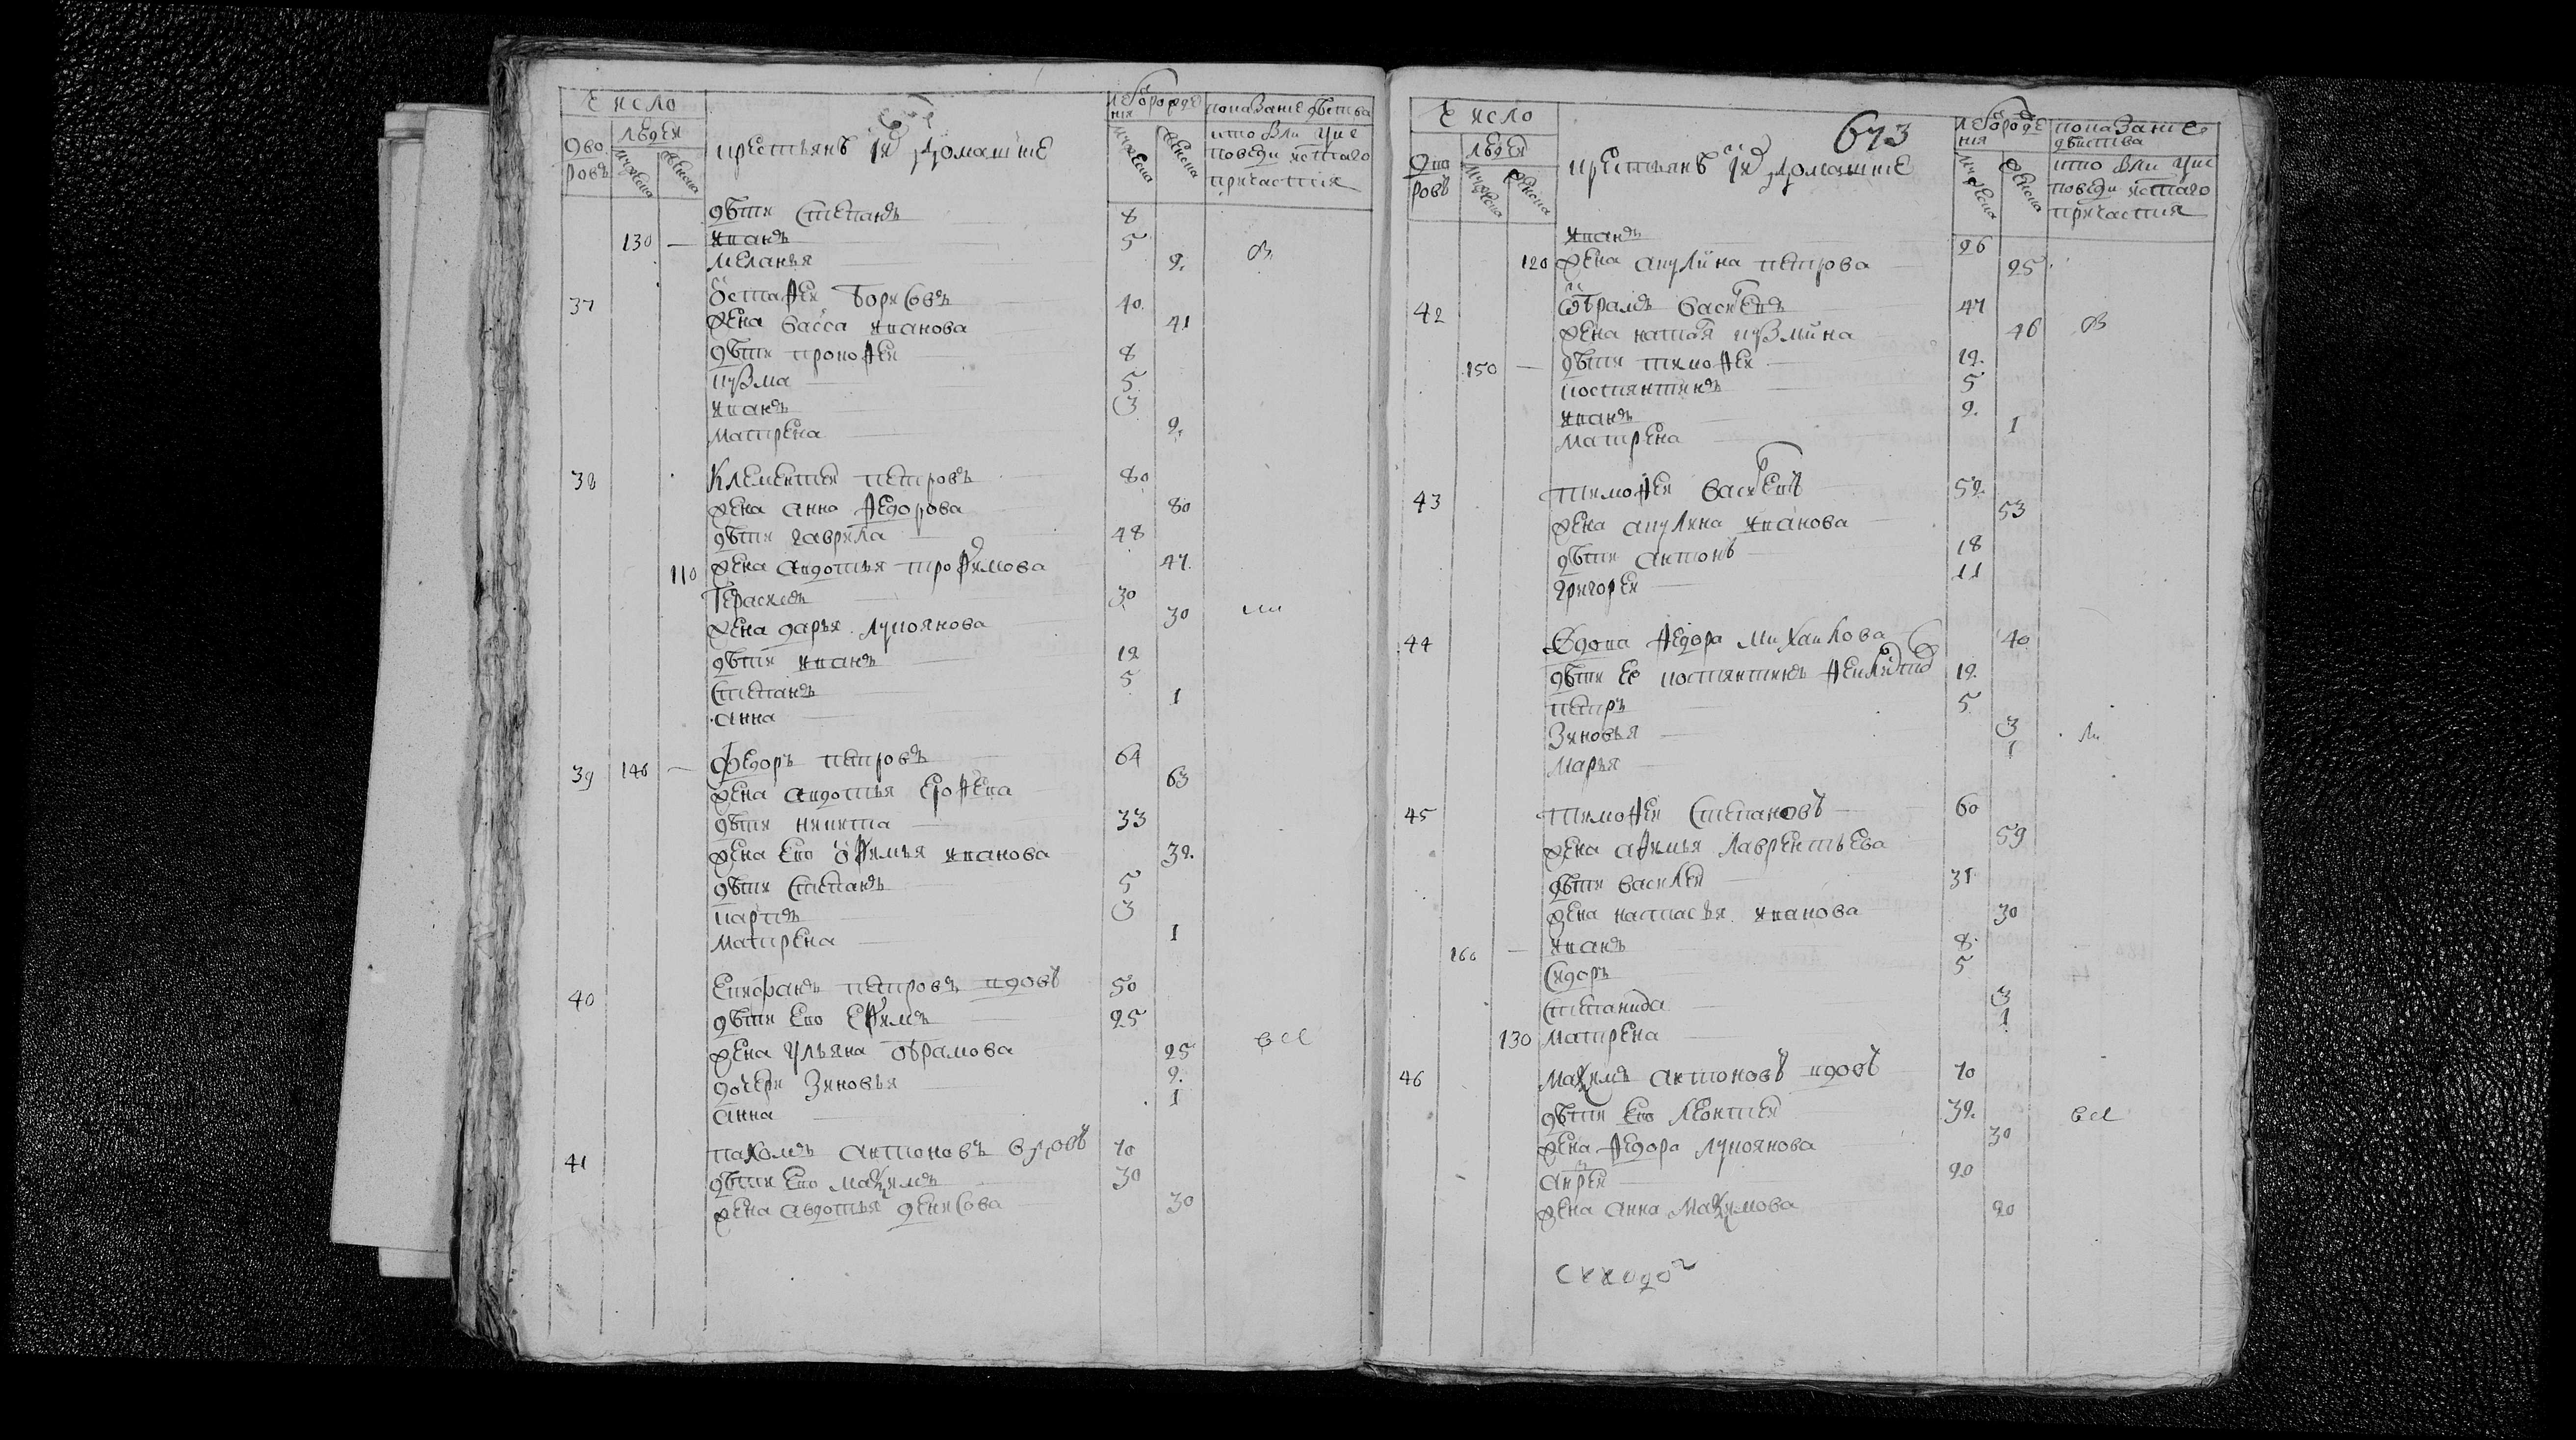 Число
Дворовъ
людей
мужеска
женска
крестьянѣ и ихъ домашние
лѣто рождения
мужеска
женска
показание действа
кто были у исповеди и с̃таго
причастия
дѣти Степанъ 8
130 — Иванъ 5
Меланья 2.
37 Остафей Борисовъ 40
жена Васса Иванова 41
дѣти Прокофей 8
Кузма 5
Иванъ 3
Матрена 2.
38 Клементей Петровъ 80
жена Анна Федорова 80
дѣти Гаврила 48
110 жена Авдотья Трофимова 47.
Герасимъ 30
жена Дарья Лукоянова 30
дѣти Иванъ 12
Степанъ 5
Анна 1
39 140 — Федоръ Петровъ 64
жена Авдотья Ерофева 63
дѣти Никита 33
жена ево Офимья Иванова 32.
дѣти Степанъ 5
Карпъ 3
Матрена 1
40 Епифанъ Петровъ вдовъ 50
дѣти ево Ефимъ 25
жена Ульяна Обрамова 25 вси
дочери Зиновья 2.
Анна 1
41 Пахомъ Антоновъ вдовъ 70
дѣти ево Маѯимъ 30
жена Авдотья Денисова 30
673
Число
Дворовъ
людей
мужеска
женска
крестьянѣ и ихъ домашние
лѣто рождения
мужеска
женска
показание
действа
кто были у исповеди и с̃таго
причастия
Иванъ 26
120 жена Акулина Петрова 25
42 Обрамъ Василевъ 47
жена Наталя Кузмина 46
150 — дѣти Тимофей 12.
Костянтинъ 5
Иванъ 2.
Матрена 1
43 Тимофей Василевъ 52.
жена Акулина Иванова 53
дѣти Антонъ 18
Григорей 11
44 Вдова Федора Михайлова 40
дѣти ее Костянтинъ 12.
Петръ 5
Зиновья 3
Марья 1
45 Тимофей Степановъ 60
жена Афимья Лаврентьева 59
дѣти Василей 31
жена Настасья Иванова 30
160 — Иванъ 8
Сидоръ 5
Степанида 3
130 Матрена 1
46 Маѯимъ Антоновъ вдовъ 70
дѣти ево Леонтей 32. вси
жена Федора Лукоянова 30
Анрей 20
жена Анна Маѯимова 20